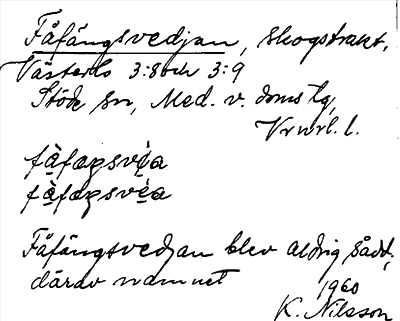 Fåfängsvedjan, skogstrakt,
Västerlo 3:8 och 3:9
Stöde sn, Med. v. doms tg,
Vrnrl. l.
fåfæŋsve̱a
fåfæŋsve̱a
Fåfängsvedjan blev aldrig sådd,
därav namnet
1960
K. Nilsson